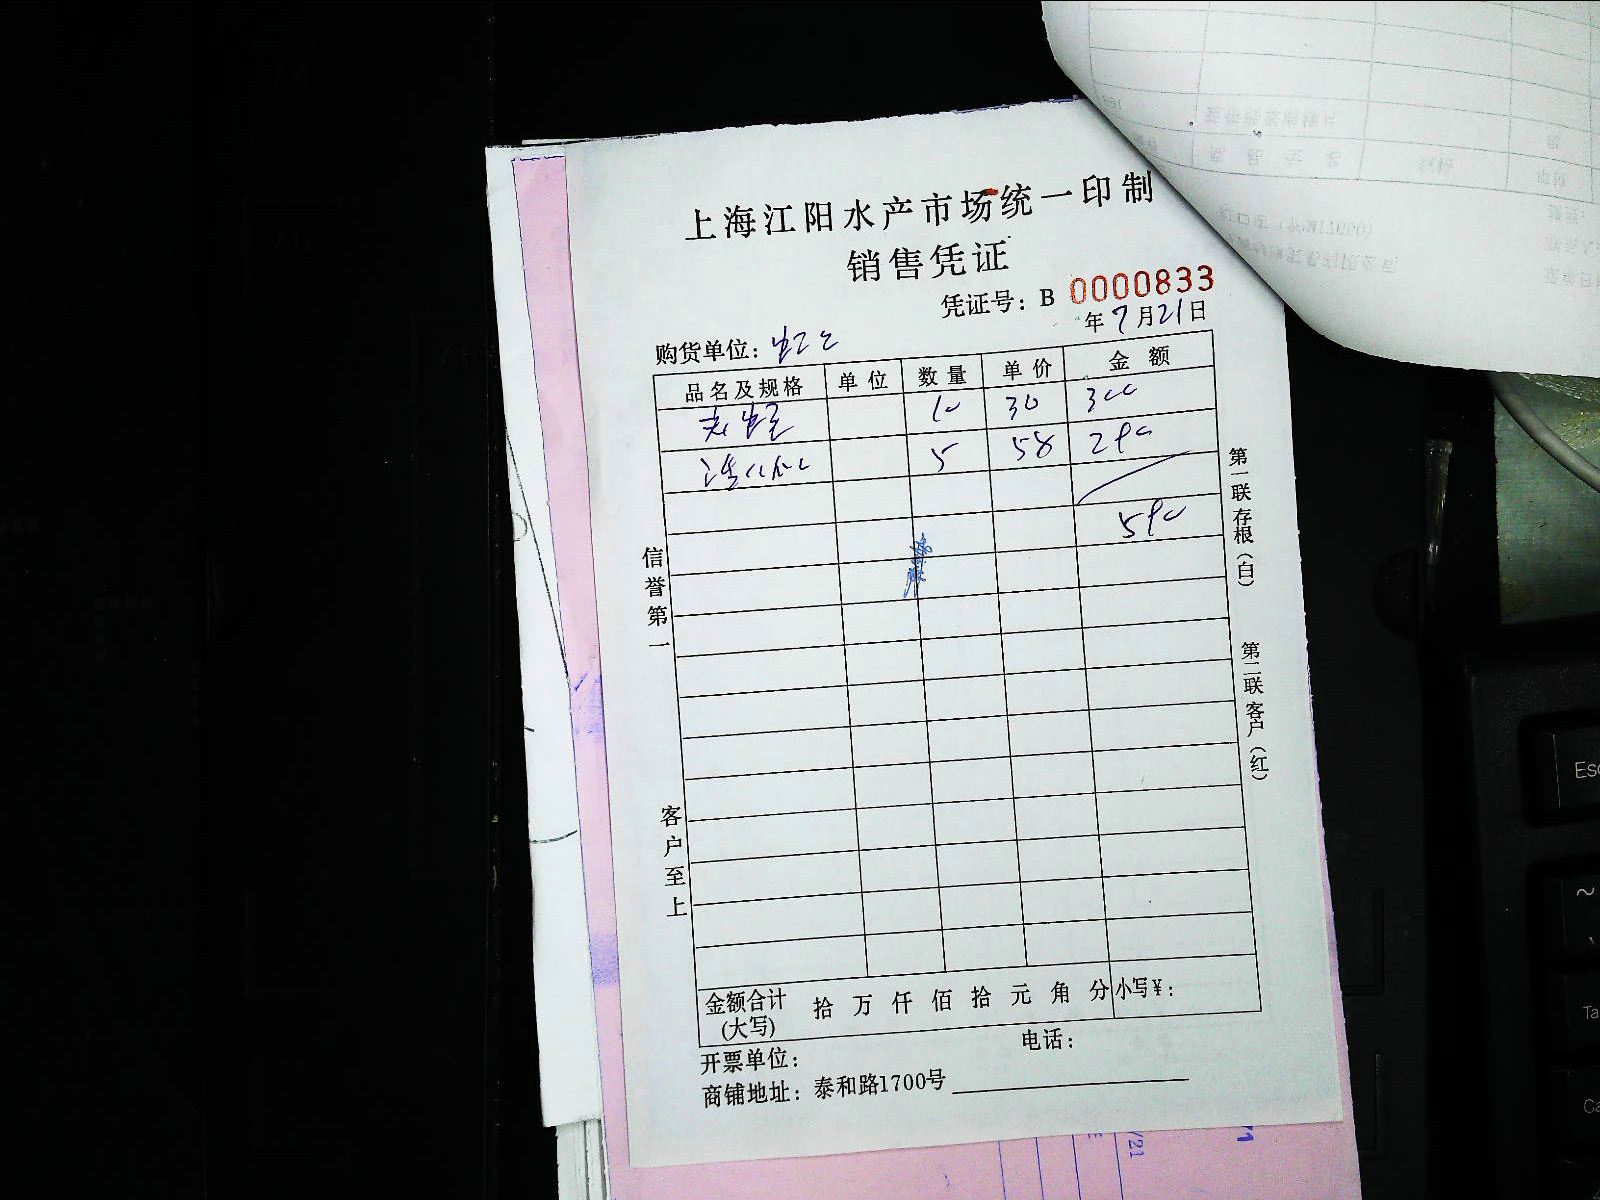 上海江阳水产市场统一印制
销售凭证
凭证号：B 0000833
年7月21日
购货单位：
品名及规格 单位 数量 单价 金额
10 30 300
5 58 290
590
信誉第一
客户至上
第一联存根（白）
第二联客户（红）
金额合计(大写) 拾 万 仟 佰 拾 元 角 分 小写¥：
开票单位： 电话：
商铺地址：泰和路1700号
Esc